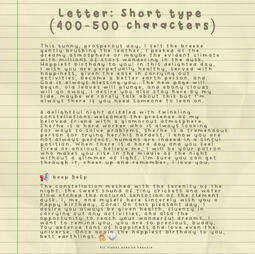 Letter: Short type
(400-500 characters)
This sunny, prosperous day, I felt the breeze
gently brushing the leaves. I peeked at the
dreamy atmosphere or maybe the evident climate
with millions of stars wandering in the dusk.
Happy Birthday to you! In this delightful day,
I wish you are perpetually healthy, served with
happiness, given the ease in carrying out
activities, become a better earth person, and
God is always blessing you. The new pages will
begin, old leaves will plunge, and ebony clouds
will go away. I advise you also stay here by my
side, maybe we can rarely talk about this but I'm
always there if you need someone to lean on.
A delightful night drizzled with twinkling
constellations welcomes the presence of my
beloved friend with a glamour atmosphere.
She/he is a hard worker, is always looking for
way out to solve problems, She/he is a tremendous
person for trying her/his hardest. I know you are
not always strong, humans are indeed in a pitiful
position. When there is a hard day and you feel
tired or any, believe me, I will be your patron
who makes you rise in the middle of the night
without a glimmer of light. I'm sure you can get
through it, cheer up and remember, I love you.
beep beep
The constellation meshed with the serenity of the
night, the sweet sound of tiny crickets and water
flow etched the natural sensation of the element
dusk. I, me, and myself here sincerely wish you a
happy birthday, Cora! On this pleasant day, I
desire you always be given health, fluency in
carrying out any activities, and also the
opportunity to reach your wonderful dreams. I
want to remind you, you are so precious, Cora.
You deserve tons of happiness and love even the
universe. Once again, happiest birthday to you,
best earthlings.